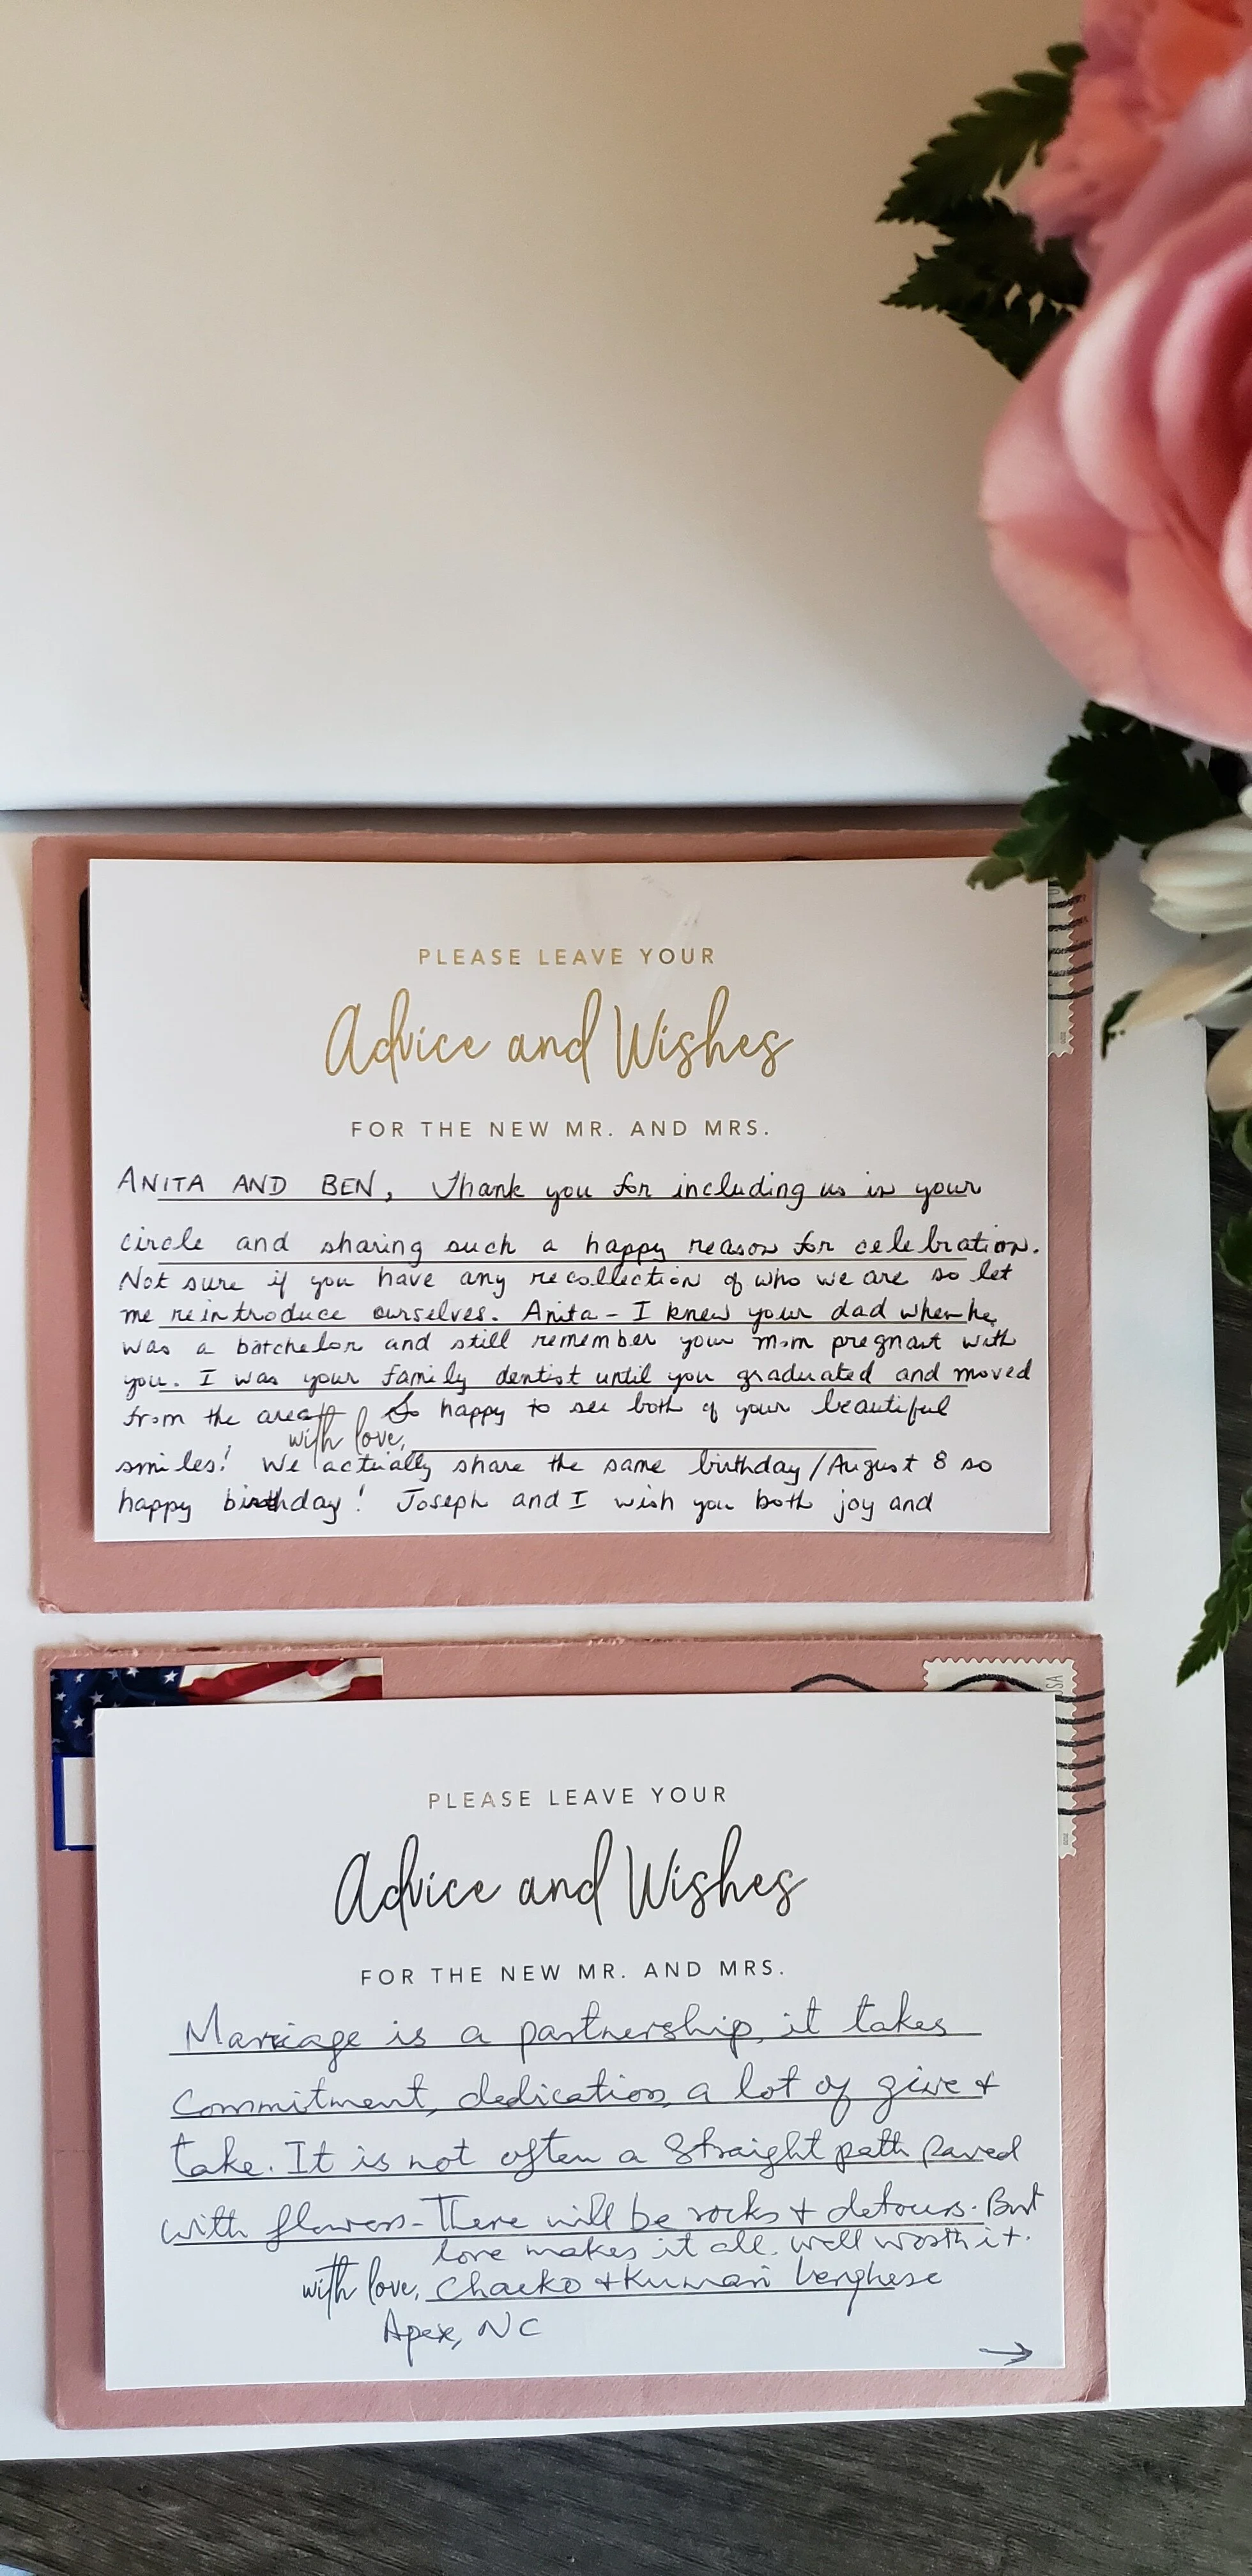 PLEASE LEAVE YOUR
Advice and Wishes
FOR THE NEW MR. AND MRS.
ANITA AND BEN, Thank you for including us in your
circle and sharing such a happy reason for celebration.
Not sure if you have any recollection of who we are so let
me reintroduce ourselves. Anita - I knew your dad when he
was a batchelor and still remember your mom pregnant with
you. I was your family dentist until you graduated and moved
from the area. So happy to see both of your beautiful
with love,
smiles! We actually share the same birthday/August 8 so
happy birthday! Joseph and I wish you both joy and
USA
PLEASE LEAVE YOUR
Advice and Wishes
FOR THE NEW MR. AND MRS.
Marriage is a partnership, it takes
Commitment, dedication, a lot of give +
take. It is not often a Straight path Paved
with flowers - There will be rocks + detours. But
love makes it all well worth it.
with love, Chacko + Kumari Verghese
Apex, NC